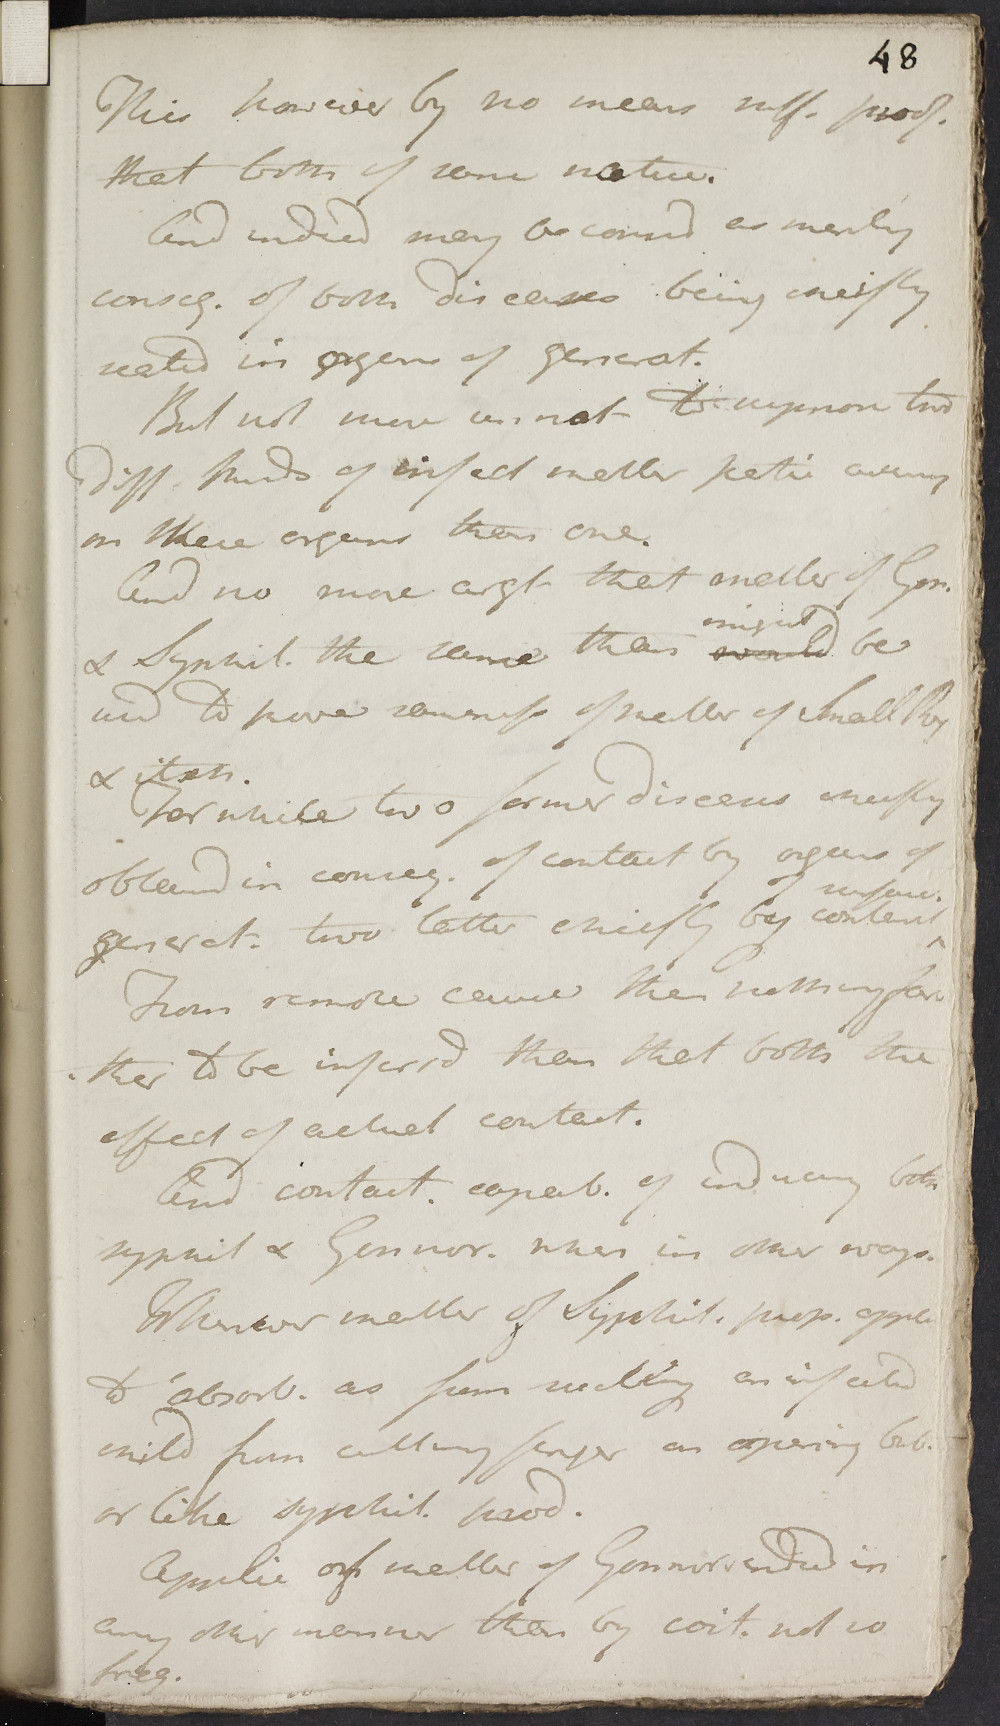 48
This however by no means suff. proof.
that both of same nature.
And indeed may be consid as merely
conseq. of both diseases being chiefly
seated in organs of generat.
But not more unnat to suppose two
diff. kinds of infect matter partic acting
on these organs than one.
And no more argt that matter of Gon.
& Syphil. the same than might would be
usd to prove sameness of matter of Small Pox
& itch.
For while two former diseases chiefly
obtaind in conseq. of contact by organs of
generat. two latter chiefly by contact of surface.
From remote cause then nothing far
ther to be inferrd than that both the
effect of actual contact.
And contact. capab. of inducing both
syphil & Gonnor. when in other ways.
Wherever matter of Syphil. prop. applid
to absorb. as from suckling an infected
child from cutting finger in opening bub.
or like syphil. prod.
Applic of matter of Gonnor. indeed in
any other manner than by coit. not so
freq.